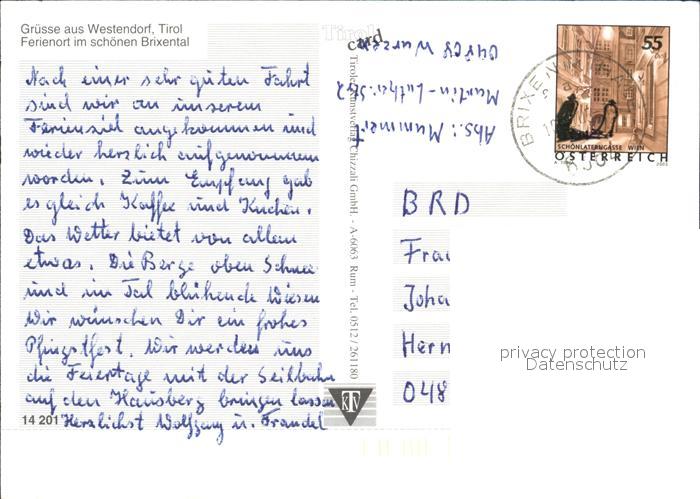 Grüsse aus Westendorf, Tirol
Ferienort im schönen Brixental
Nach einer sehr guten Fahrt
sind wir an unserem
Ferienziel angekommen und
wieder herzlich aufgenommen
worden. Zum Empfang gab
es gleich Kaffee und Kuchen.
Das Wetter bietet von allem
etwas. Die Berge oben Schnee
und im Tal blühende Wiesen
Wir wünschen Dir ein frohes
Pfingstfest. Wir werden uns
die Feiertage mit der Seilbahn
auf den Hausberg bringen lassen
Herzlichst Wolfgang u.
14 201
Tirol
card
Tiroler Kunstverlag Chizzali GmbH. - A-6063 Rum - Tel. 0512 / 261180
KTV
Abs.: Mummert
Martin-Luther-Str. 2
Wurzen
55
BRIXEN
SCHÖNLATERNGASSE WIEN
ÖSTERREICH
BRD
Frau
Joha
Herr
048
privacy protection
Datenschutz